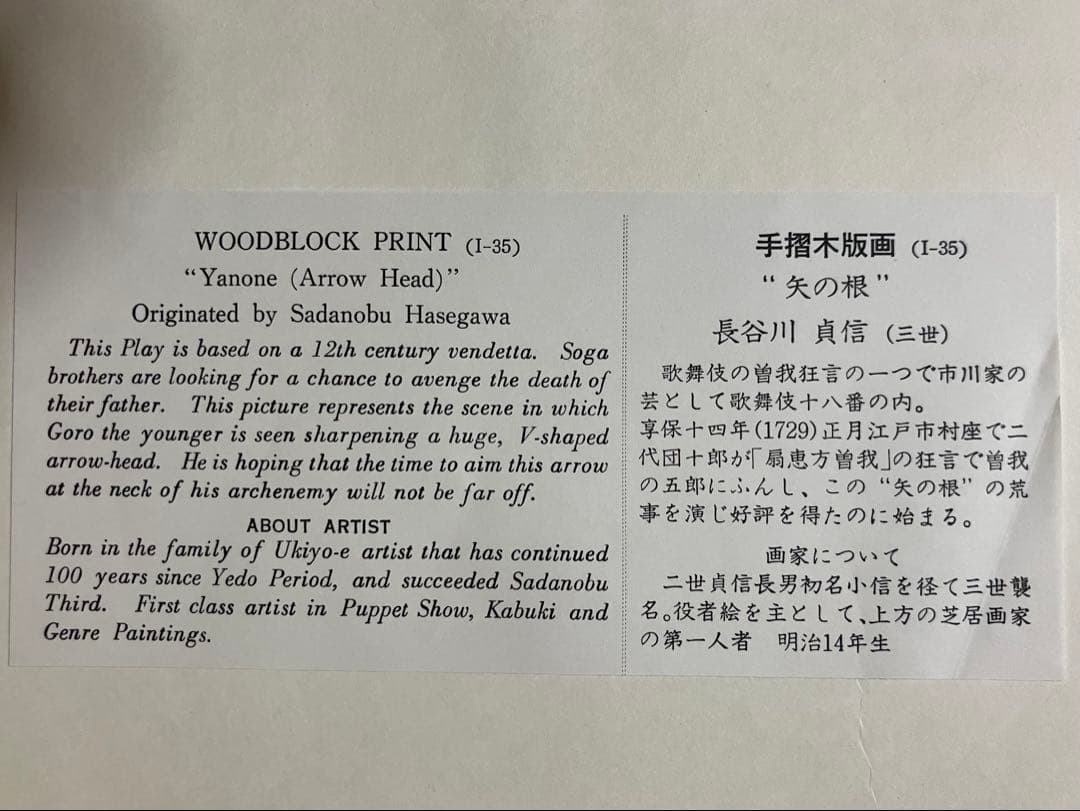 WOODBLOCK PRINT (I-35)
“Yanone (Arrow Head)”
Originated by Sadanobu Hasegawa
This Play is based on a 12th century vendetta. Soga
brothers are looking for a chance to avenge the death of
their father. This picture represents the scene in which
Goro the younger is seen sharpening a huge, V-shaped
arrow-head. He is hoping that the time to aim this arrow
at the neck of his archenemy will not be far off.
ABOUT ARTIST
Born in the family of Ukiyo-e artist that has continued
100 years since Yedo Period, and succeeded Sadanobu
Third. First class artist in Puppet Show, Kabuki and
Genre Paintings.
手摺木版画 (I-35)
“矢の根”
長谷川 貞信 (三世)
歌舞伎の曽我狂言の一つで市川家の
芸として歌舞伎十八番の内。
享保十四年(1729)正月江戸市村座で二
代団十郎が「扇恵方曽我」の狂言で曽我
の五郎にふんし、この“矢の根”の荒
事を演じ好評を得たのに始まる。
画家について
二世貞信長男初名小信を経て三世襲
名。役者絵を主として、上方の芝居画家
の第一人者 明治14年生